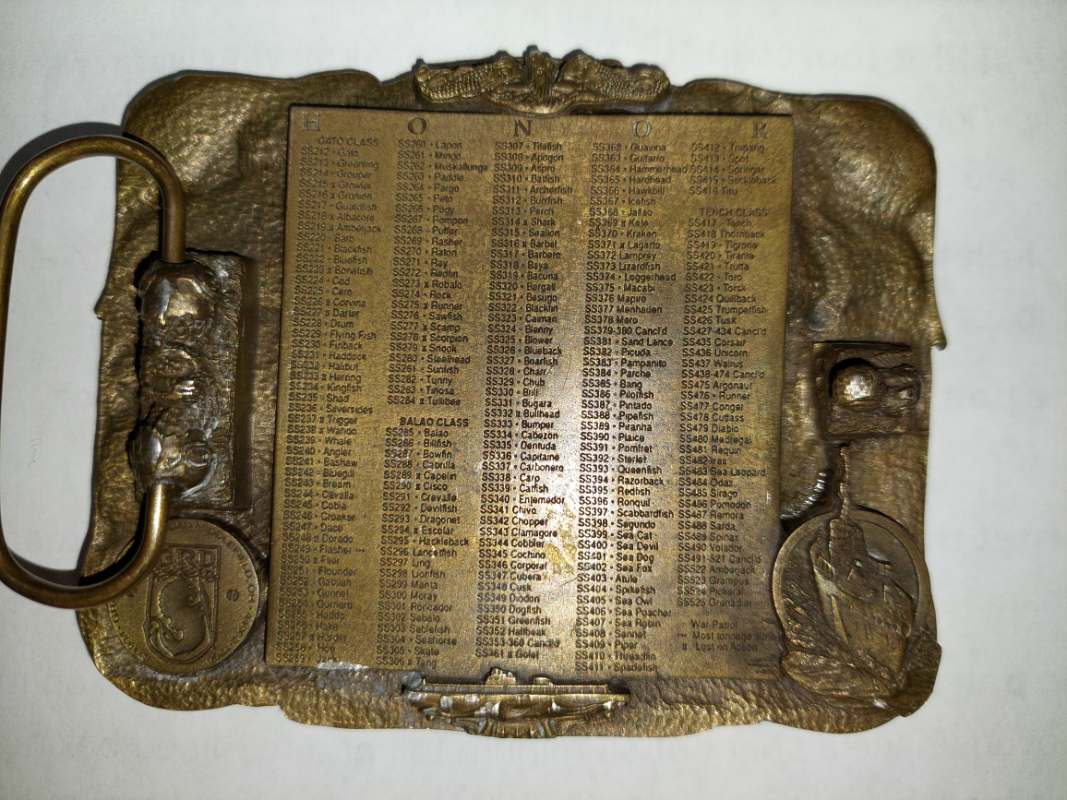 HONOR
GATO CLASS
SS212 • Gato
SS213 • Greenling
SS214 • Grouper
SS215 x Growler
SS216 x Grunion
SS217 • Guardfish
SS218 x Albacore
SS219 x Amberjack
SS220 • Barb
SS221 • Blackfish
SS222 • Bluefish
SS223 x Bonefish
SS224 • Cod
SS225 • Cero
SS226 x Corvina
SS227 x Darter
SS228 • Drum
SS229 • Flying Fish
SS230 • Finback
SS231 • Haddock
SS232 • Halibut
SS233 x Herring
SS234 • Kingfish
SS235 • Shad
SS236 • Silversides
SS237 x Trigger
SS238 x Wahoo
SS239 • Whale
SS240 • Angler
SS241 • Bashaw
SS242 • Bluegill
SS243 • Bream
SS244 • Cavalla
SS245 • Cobia
SS246 • Croaker
SS247 • Dace
SS248 x Dorado
SS249 • Flasher ***
SS250 x Flier
Flounder
SS252 • Gabilan
Gunnel
Gurnard
Haddo
Hake
Harder
SS258 • Hoe
SS260 • Lapon
SS261 • Mingo
SS262 • Muskallunge
SS263 • Paddle
SS264 • Pargo
SS265 • Peto
SS266 • Pogy
SS267 • Pompon
SS268 • Puffer
SS269 • Rasher
SS270 • Raton
SS271 • Ray
SS272 • Redfin
SS273 x Robalo
SS274 • Rock
SS275 x Runner
SS276 • Sawfish
SS277 x Scamp
SS278 x Scorpion
SS279 x Snook
SS280 • Steelhead
SS281 • Sunfish
SS282 • Tunny
SS283 • Tinosa
SS284 x Tullibee
BALAO CLASS
SS285 • Balao
SS286 • Billfish
SS287 • Bowfin
SS288 • Cabrilla
SS289 x Capelin
SS290 x Cisco
SS291 • Crevalle
SS292 • Devilfish
SS293 • Dragonet
SS294 x Escolar
SS295 • Hackleback
SS296 Lancetfish
SS297 Ling
SS298 Lionfish
SS299 Manta
SS300 Moray
SS301 Roncador
SS302 Sabalo
SS303 Sablefish
SS304 • Seahorse
SS305 • Skate
SS306 x Tang
SS307 • Tilefish
SS308 • Apogon
SS309 • Aspro
SS310 • Batfish
SS311 • Archerfish
SS312 • Burrfish
SS313 • Perch
SS314 x Shark
SS315 • Sealion
SS316 x Barbel
SS317 • Barbero
SS318 • Baya
SS319 • Becuna
SS320 • Bergall
SS321 • Besugo
SS322 • Blackfin
SS323 • Caiman
SS324 • Blenny
SS325 • Blower
SS326 • Blueback
SS327 • Boarfish
SS328 • Charr
SS329 • Chub
SS330 • Brill
SS331 • Bugara
SS332 x Bullhead
SS333 • Bumper
SS334 • Cabezon
SS335 • Dentuda
SS336 • Capitaine
SS337 • Carbonero
SS338 • Carp
SS339 • Catfish
SS340 • Entemedor
SS341 Chivo
SS342 Chopper
SS343 Clamagore
SS344 Cobbler
SS345 Cochino
SS346 Corporal
SS347 Cubera
SS348 Cusk
SS349 Diodon
SS350 Dogfish
SS351 Greenfish
SS352 Halfbeak
SS353-360 Cancl'd
SS361 x Golet
SS362 • Guavina
SS363 • Guitarro
SS364 • Hammerhead
SS365 • Hardhead
SS366 • Hawkbill
SS367 • Icefish
SS368 • Jallao
SS369 x Kete
SS370 • Kraken
SS371 x Lagarto
SS372 Lamprey
SS373 Lizardfish
SS374 • Loggerhead
SS375 • Macabi
SS376 Mapiro
SS377 Menhaden
SS378 Mero
SS379-380 Cancl'd
SS381 • Sand Lance
SS382 • Picuda
SS383 • Pampanito
SS384 • Parche
SS385 • Bang
SS386 • Pilotfish
SS387 • Pintado
SS388 • Pipefish
SS389 • Piranha
SS390 • Plaice
SS391 • Pomfret
SS392 • Sterlet
SS393 • Queenfish
SS394 • Razorback
SS395 • Redfish
SS396 • Ronquil
SS397 • Scabbardfish
SS398 • Segundo
SS399 • Sea Cat
SS400 • Sea Devil
SS401 • Sea Dog
SS402 • Sea Fox
SS403 • Atule
SS404 • Spikefish
SS405 • Sea Owl
SS406 • Sea Poacher
SS407 • Sea Robin
SS408 • Sennet
SS409 • Piper
SS410 • Threadfin
SS411 • Spadefish
SS412 • Trepang
SS413 • Spot
SS414 • Springer
SS415 • Stickleback
SS416 Tiru
TENCH CLASS
SS417 • Tench
SS418 Thornback
SS419 • Tigrone
SS420 • Tirante
SS421 • Trutta
SS422 • Toro
SS423 • Torsk
SS424 Quillback
SS425 Trumpetfish
SS426 Tusk
SS427-434 Cancl'd
SS435 Corsair
SS436 Unicorn
SS437 Walrus
SS438-474 Cancl'd
SS475 Argonaut
SS476 • Runner
SS477 Conger
SS478 Cutlass
SS479 Diablo
SS480 Medregal
SS481 Requin
SS482 Irex
SS483 Sea Leopard
SS484 Odax
SS485 Sirago
SS486 Pomodon
SS487 Remora
SS488 Sarda
SS489 Spinax
SS490 Volador
SS491-521 Cancl'd
SS522 Amberjack
SS523 Grampus
SS524 Pickerel
SS525 Grenadier
• War Patrol
*** Most tonnage sunk
x Lost in Action